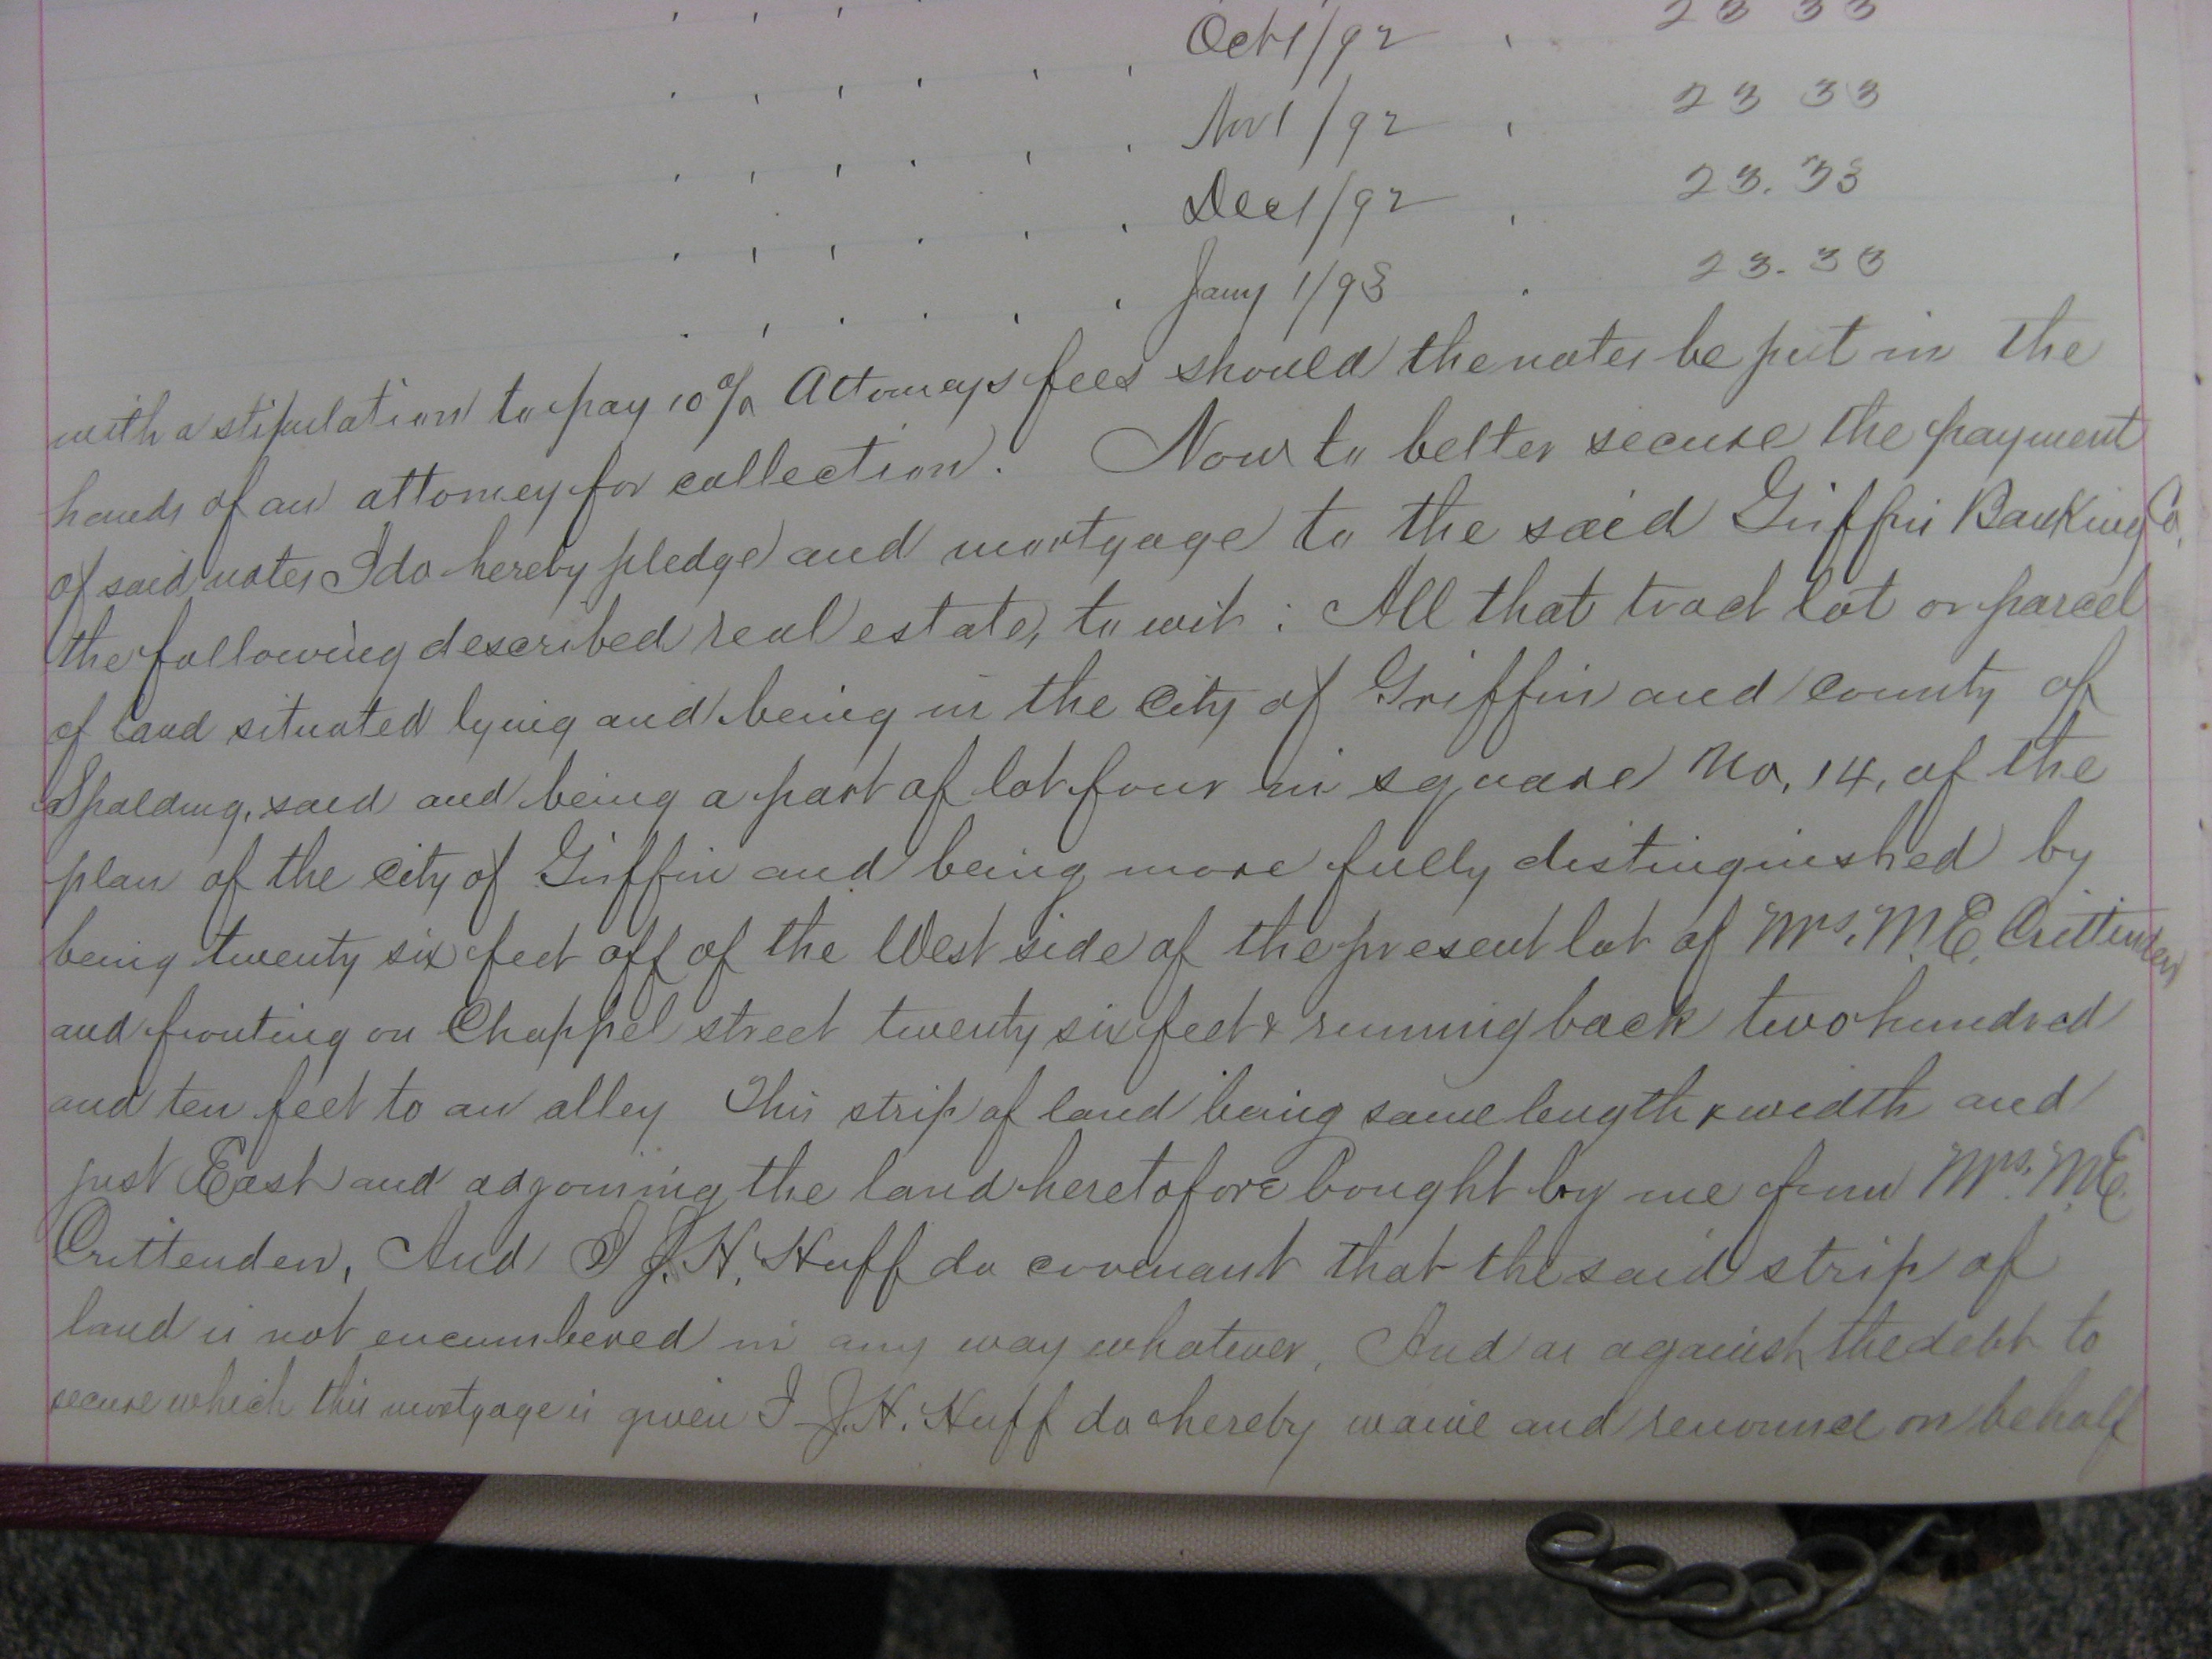 " " " " " " Oct 1/92 " 23 33
" " " " " " Nov 1/92 " 23 33
" " " " " " Dec 1/92 " 23.33
" " " " " " Jany 1/93 " 23.33
with a stipulation to pay 10% Attorneys fees should the notes be put in the
hands of an attorney for collection. Now to better secure the payment
of said notes I do hereby pledge and mortgage to the said Griffin Banking Co.
the following described real estate, to wit: All that tract lot or parcel
of land situated lying and being in the City of Griffin and County of
Spalding, said and being a part of lot four in square No, 14, of the
plan of the City of Griffin and being more fully distinguished by
being twenty six feet off of the West side of the present lot of Mrs. M.E. Crittenden
and fronting on Chappel street twenty six feet & running back two hundred
and ten feet to an alley This strip of land being same length & width and
just East and adjoining the land heretofore bought by me from Mrs. M.E.
Crittenden, And I J.H. Huff do covenant that the said strip of
land is not encumbered in any way whatever, And as against the debt to
secure which this mortgage is given I J.H. Huff do hereby waive and renounce on behalf